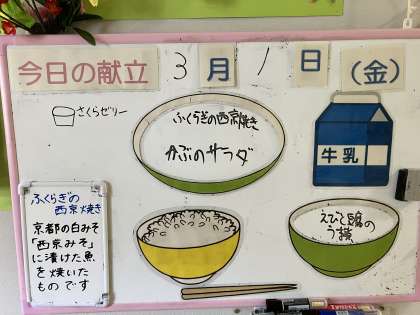 今日の献立 3月1日(金)
さくらゼリー
ふくらぎの西京焼き
かぶのサラダ
牛乳
えびと豆腐の
う汁
ふくらぎの
西京焼き
京都の白みそ
「西京みそ」
に漬けた魚
を焼いた
ものです